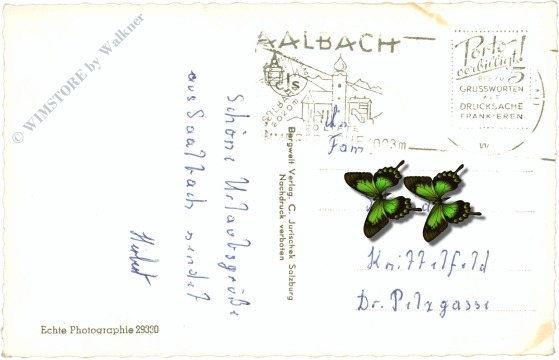 © WIMSTORE by Walkner
Schöne Urlaubsgrüße
aus Saalbach sendet
Herbert
Echte Photographie 29330
Bergwelt Verlag, C. Jurischek Salzburg
Nachdruck verboten
AALBACH
Porto
verbilligt!
BIS ZU 5
GRUSSWORTEN
ALS
DRUCKSACHE
FRANKIEREN
An
Fam.
Knittelfeld
Dr. Pelzgasse